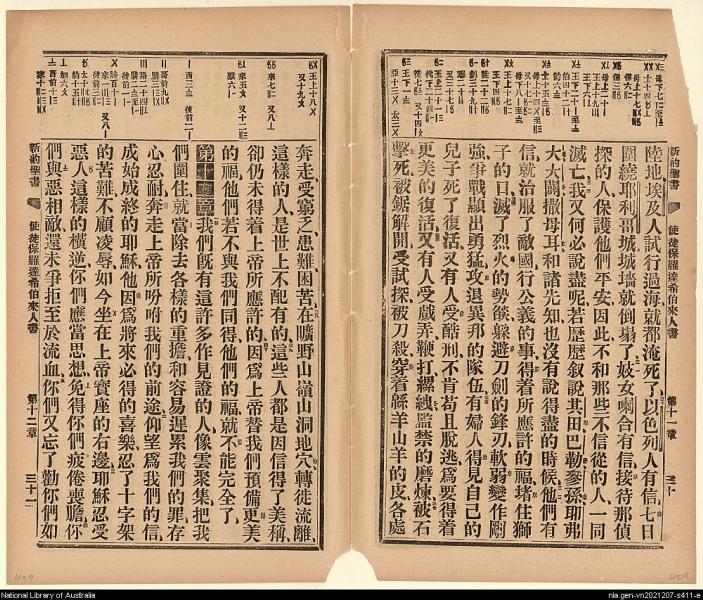 新約聖書
使徒保羅達希伯來人書
第十一章
三十
陸地埃及人試行過海就都淹死了以色列人有信七日
圍繞耶利哥城城墻就倒塌了妓女喇合有信接待那偵
探的人保護他們平安因此不和那些不信從的人一同
滅亡我又何必說盡呢若歷歷叙說其田巴勒參孫耶弗
大大闢撒母耳和諸先知也沒有說得盡的時候他們有
信就治服了敵國行公義的事得着所應許的福堵住獅
子的口滅了烈火的勢燄躲避刀劍的鋒刃軟弱變作剛
強爭戰顯出勇猛攻退異邦的隊伍有婦人得見自己的
兒子死了復活又有人受酷刑不肯苟且脫逃爲要得着
更美的復活又有人受戲弄鞭打縲絏監禁的磨煉被石
擊死被鋸解開受試探被刀殺穿着綿羊山羊的皮各處
奔走受窮乏患難困苦在曠野山嶺山洞地穴轉徙流離
這樣的人是世上不配有的這些人都是因信得了美稱
卻仍未得着上帝所應許的因爲上帝替我們預備更美
的福他們若不與我們同得他們的福就不能完全了
第十二章我們既有這許多作見證的人像雲聚集把我
們圍住就當除去各樣的重擔和容易遲累我們的罪存
心忍耐奔走上帝所吩咐我們的前途仰望爲我們的信
成始成終的耶穌他因爲將來必得的喜樂忍了十字架
的苦難不顧凌辱如今坐在上帝寶座的右邊耶穌忍受
惡人這樣的橫逆你們應當思想免得你們疲倦喪膽你
們與惡相敵還未爭拒至於流血你們又忘了勸你們如
新約聖書
使徒保羅達希伯來人書
第十二章
三十一
National Library of Australia
nla.gen-vn2021207-s411-e